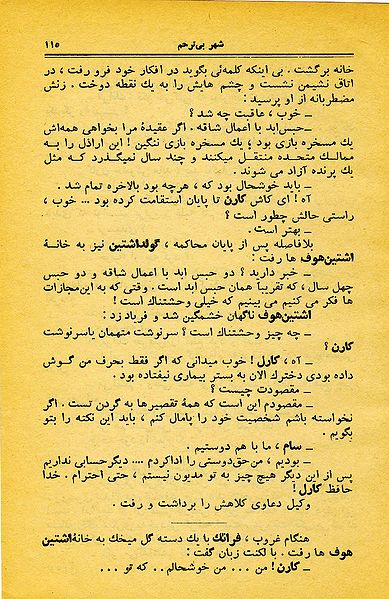 شهر بی‌ترحم
۱۱۵
خانه برگشت . بی اینکه کلمه‌ئی بگوید در افکار خود فرو رفت ، در
اتاق نشیمن نشست و چشم هایش را به یك نقطه دوخت . زنش
مضطربانه از او پرسید :
ــ خوب ، عاقبت چه شد ؟
ــ حبس‌ابد با اعمال شاقه . اگر عقیدهٔ مرا بخواهی همه‌اش
یك مسخره بازی بود ؛ یك مسخره بازی ننگین ! این اراذل را به
ممالك متحده منتقل میکنند و چند سال نمیگذرد که مثل
یك پرنده آزاد می شوند .
ــ باید خوشحال بود که ، هرچه بود بالاخره تمام شد .
آه ! ای کاش کارن تا پایان استقامت کرده بود ... خوب ،
راستی حالش چطور است ؟
ــ بهتر است .
بلافاصله پس از پایان محاکمه ، گولداشتین نیز به خانهٔ
اشتین‌هوف ها رفت :
ــ خبر دارید ؟ دو حبس ابد با اعمال شاقه و دو حبس
چهل سال ، که تقریباً همان حبس ابد است . وقتی که به این‌مجازات
ها فکر می کنیم می بینیم که خیلی وحشتناك است !
اشتین‌هوف ناگهان خشمگین شد و فریاد زد :
ــ چه چیز وحشتناك است ؟ سرنوشت متهمان یاسرنوشت
کارن ؟
ــ آه ، کارل ! خوب میدانی که اگر فقط بحرف من گوش
داده بودی دخترك الان به بستر بیماری نیفتاده بود .
ــ مقصودت چیست ؟
ــ مقصودم این است که همهٔ تقصیرها به گردن تست . اگر
نخواسته باشم شخصیت خود را پامال کنم ، باید این نکته را بتو
بگویم .
ــ سام ، ما با هم دوستیم .
ــ بودیم ، من‌حق‌دوستی را اداکردم .... دیگرحسابی نداریم
پس از این دیگر هیچ چیز به تو مدیون نیستم ، حتی احترام . خدا
حافظ کارل !
وکیل دعاوی کلاهش را برداشت و رفت .
هنگام غروب ، فرانك با یك دسته گل میخك به خانهٔ اشتین
هوف ها رفت . با لکنت زبان گفت :
ــ کارن ! من ... من خوشحالم .. که تو ...